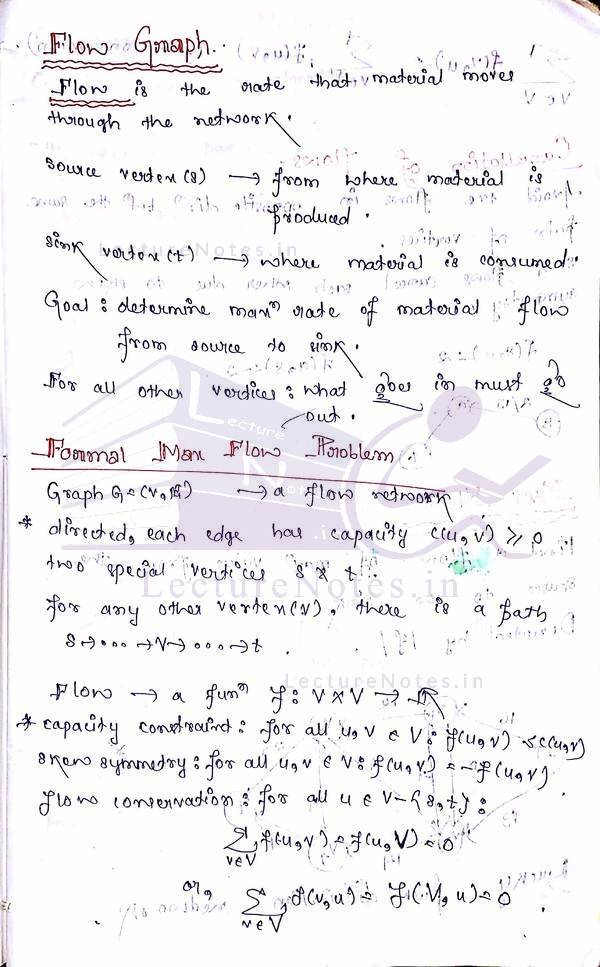 Flow Graph.
Flow is the rate that material moves
through the network.
Source vertex (s) → from where material is
produced.
LectureNotes.in
Sink vertex (t) → where material is consumed.
Goal : determine maxᵐ rate of material flow
from source to sink.
For all other vertices : what goes in must go
out.
Lecture
Formal Max Flow Problem.
Graph G = (V, E) → a flow network
* directed, each edge has capacity c(u, v) ≥ 0
two special vertices s & t.
LectureNotes.in
for any other vertex (v), there is a path
s → ... → v → ... → t.
LectureNotes.in
Flow → a funⁿ f : V x V → R
* capacity constraint : for all u, v ∈ V : f(u, v) ≤ c(u, v)
skew symmetry : for all u, v ∈ V : f(u, v) = -f(u, v)
flow conservation : for all u ∈ V-{s, t} :
∑ f(u, v) = f(u, V) = 0
v∈V
or, ∑ f(v, u) = f(V, u) = 0
v∈V